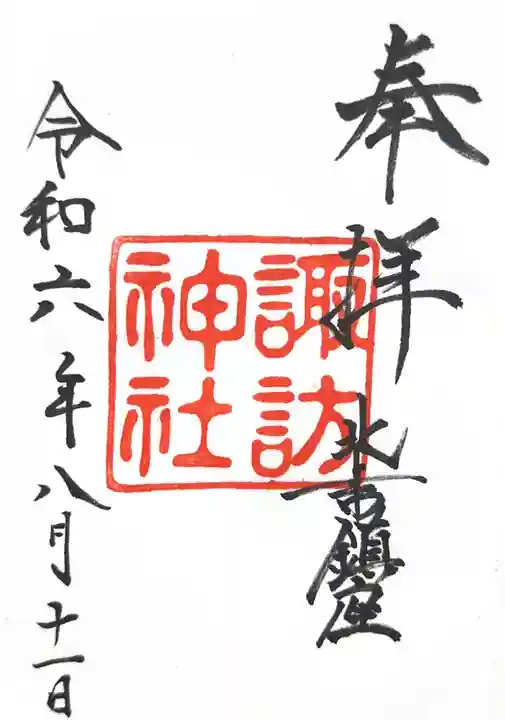 奉拝
北 鎮座
諏訪
神社
令和六年八月十一日